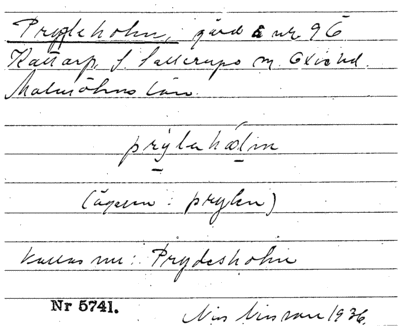 Prylleholm, gård å nr 9 6
Kattarp, S Sallerups sn Oxie hd.
Malmöhus län
prýlahòlm
(ägaren: prylen)
Kallas nu: Prydesholm
Nr 5741.
Nils Nilsson 1936.